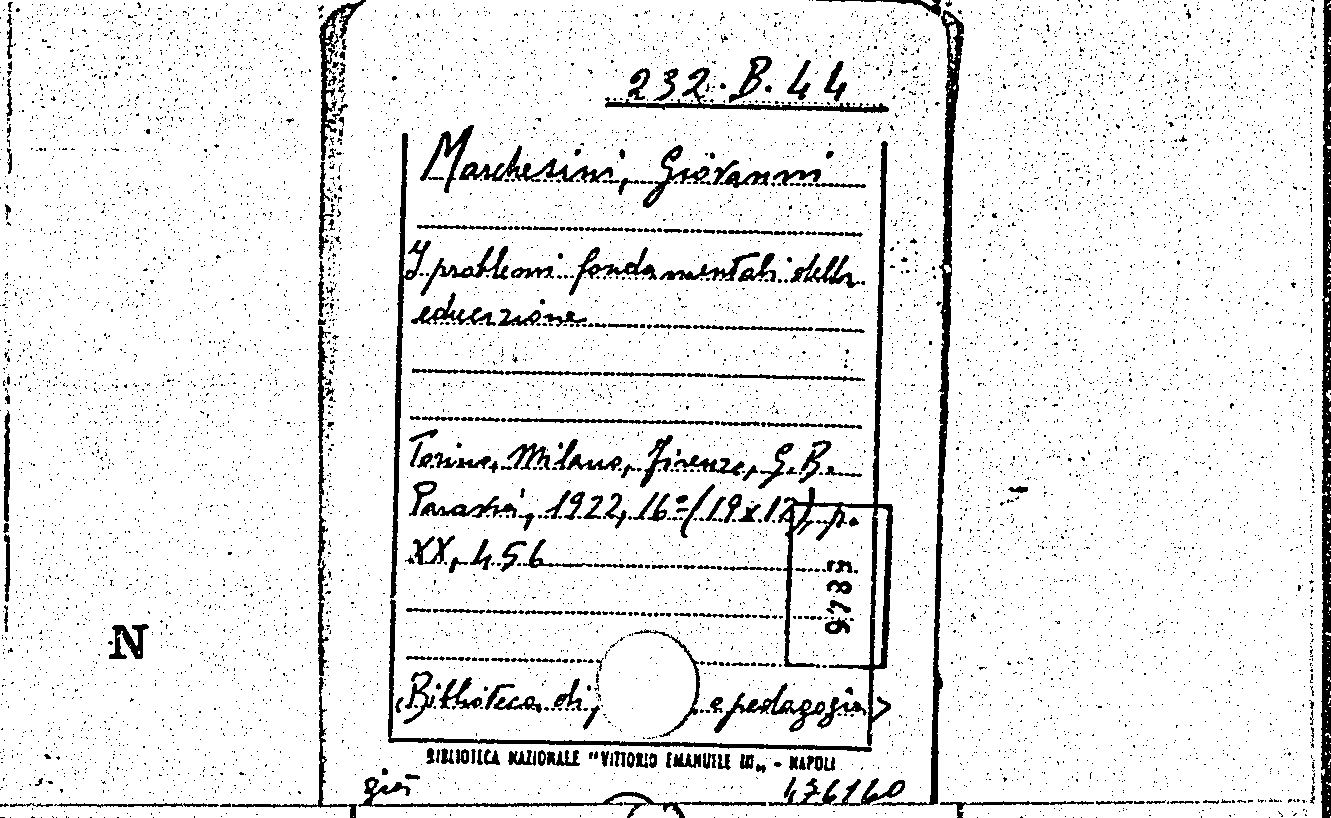 232.B.44
Marchesini, Giovanni
I problemi fondamentali della
educazione
Torino, Milano, Firenze, G.B.
Paravia, 1922, 16º (19x12), p.
XX, 456
9783
N
<Biblioteca di e pedagogia>
BIBLIOTECA NAZIONALE "VITTORIO EMANUELE III„ - NAPOLI
già 476160